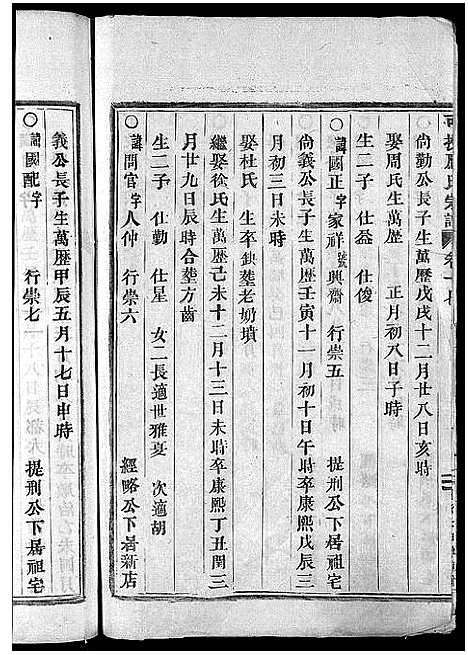 尙勤公長子生萬曆戊戌十二月廿八日亥時
娶周氏生萬曆 正月初八日子時
生二子 仕盈 仕俊
○諱國正字家祥號興齋 行崇五 提刑公下居祖宅
尙義公長子生萬歷壬寅十一月初十日午時卒康熙戊辰三
月初三日未時
娶杜氏 生卒缺塟老奶墳
繼娶徐氏生萬歷己未十二月十三日未時卒康熙丁丑閏三
月廿九日辰時合塟方齒
生二子 仕勤 仕星 女二長適世雅夏 次適胡
○諱問官字人仲 行崇六 經略公下居新店
義公長子生萬歷甲辰五月十七日申時
○諱國配字 行崇七 提刑公下居祖宅